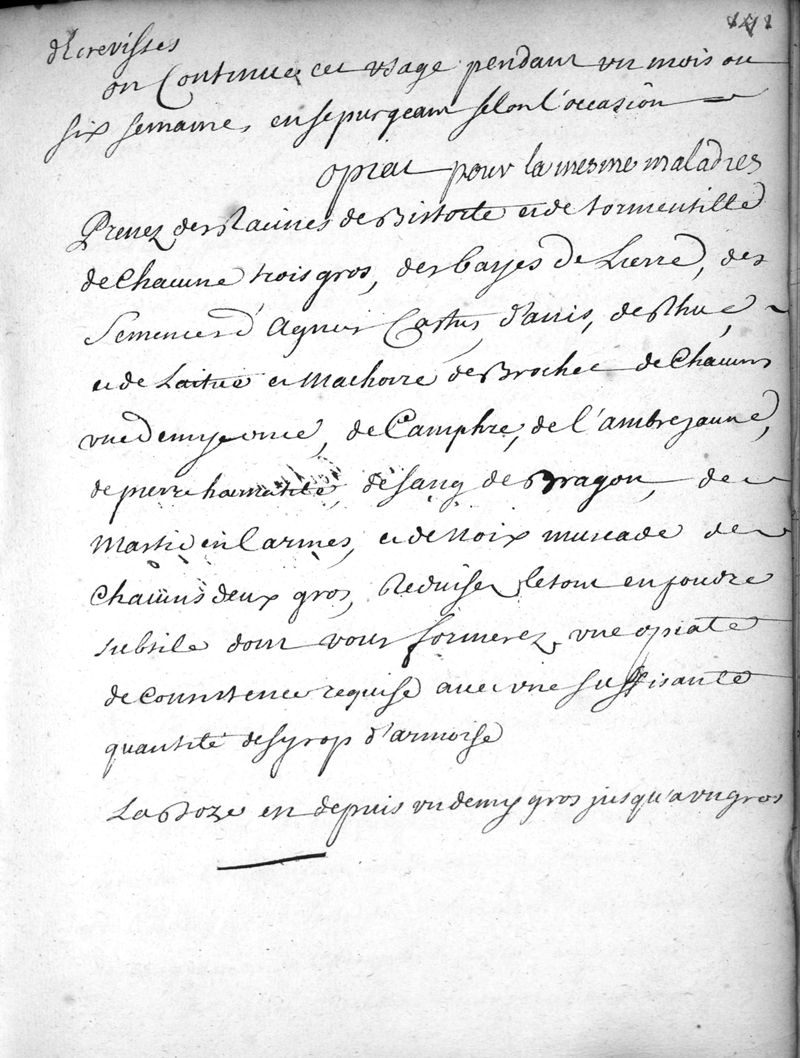 d'Ecrevisses
on Continue cet usage pendant un mois ou
six semaines, en se purgeant selon l'occasion
opiat pour la mesme maladies
Prenez des Racines de Bistorte et de tormentille
de Chacune trois gros, des bayes de Lierre, des
Semences d'Agnus Castus, d'anis, de Rhue,
et de Laitue et Machoire de Brochet de Chacuns
une demye once, de Camphre, de l'ambre jaune,
de pierre hæmatite, de sang de Dragon, de
Mastic en larmes, et de Noix muscade de
Chacuns deux gros, Reduisez le tout en poudre
subtile dont vous formerez une opiate
de consistence requise avec une suffisante
quantité de syrop d'armoise
La Doze en depuis un demy gros jusqu'a un gros